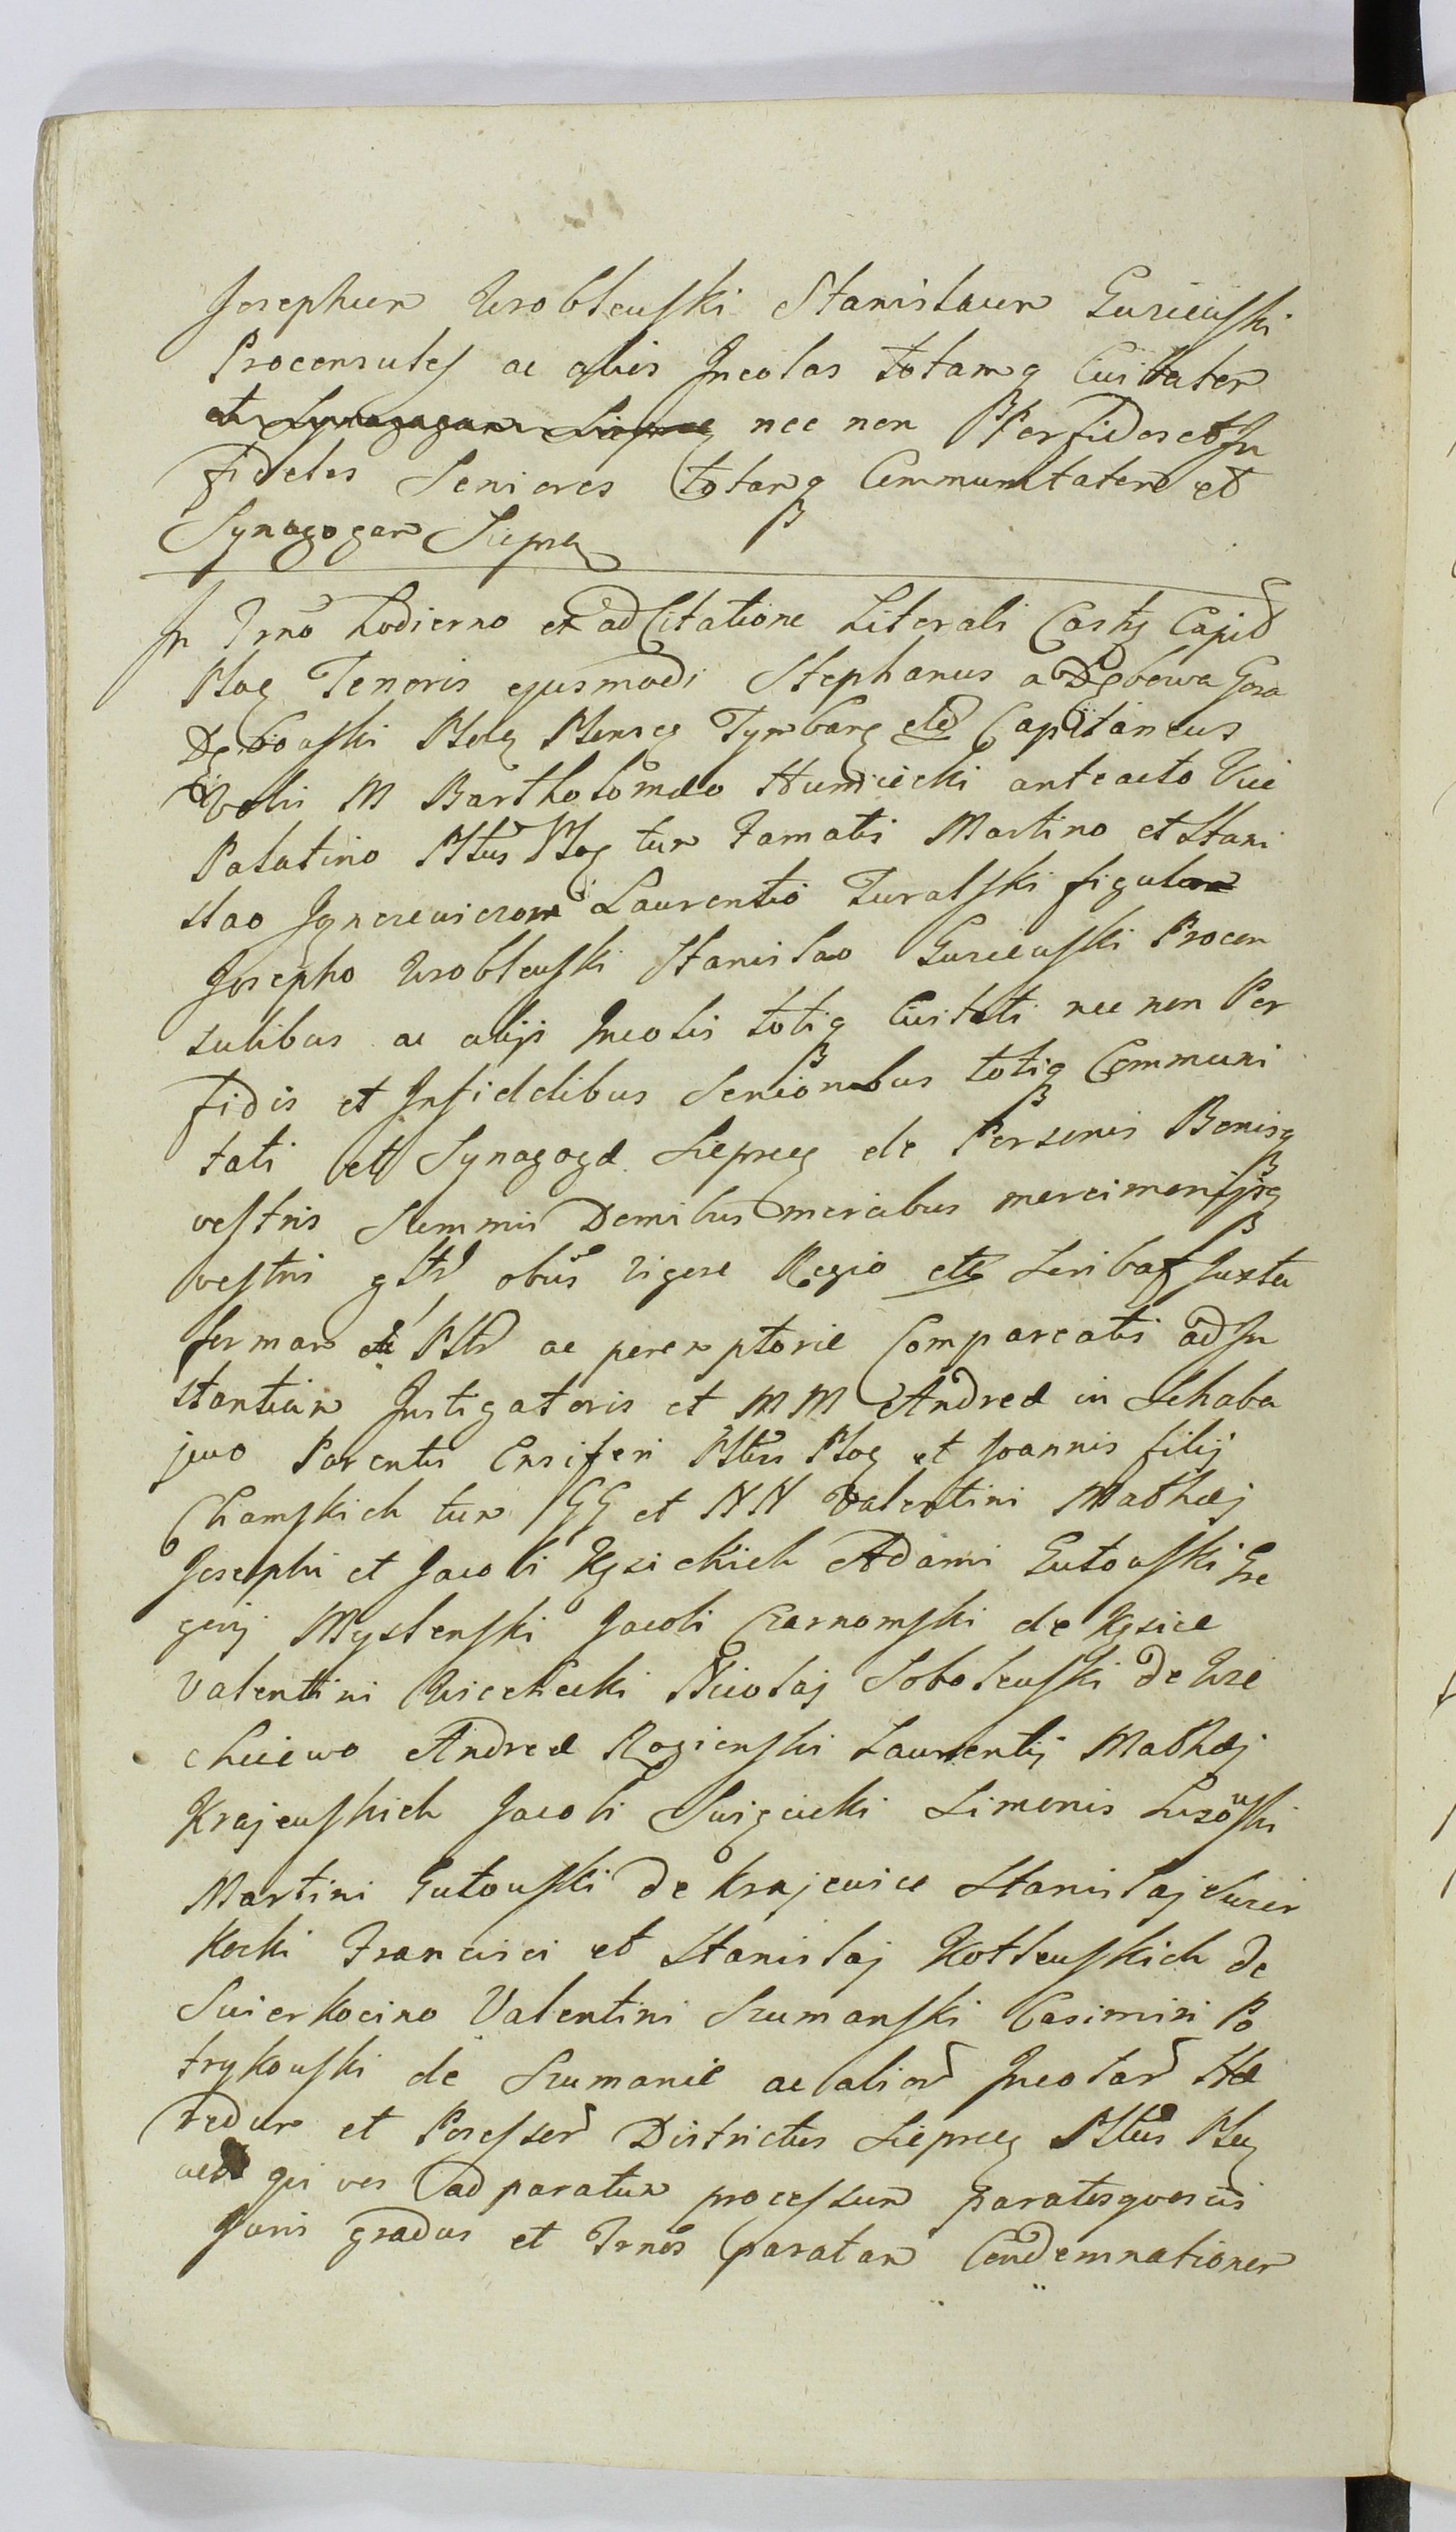 Josephum Wroblewski Stanislaum Guzicwski
Proconsules ac alios Incolas totamq Civitatem
et Synagogam nec non Perfidos et In
fideles Seniores totamq Communitatem et
Synagogam Siepre
In Trno hodierno ex ad Citatione Literali Castr Capit
Ploc Tenoris ejusmodi Stephanus a Dębowa Gora
Dębowski Tymbar etc Capitaneus
Vobis M Bartholomeo Humiecki anteacto Vice
Palatino Pltus Ploc tum Famatis Martino et Stani
slao Laurentio Turalski figulo
Josepho Wroblewski Stanislao Guzicwski Procon
sulibus ac alijs Incolis totiq Civitati nec non Per
fidis et Infidelibus Senioribus totiq Communi
tati et Synagogæ Sieprcę de Personis Bonisq
vestris Summis Domibus mercibus mercimonijsq
vestris gltr obus rigore Regio etc Scribaf Juxta
formam et Pltr ac peremptorie Compareatis ad In
stantiam Instigatoris et MM Andreæ in Schaba
jewo Parentis Ensiferi Pltus Ploc et Joannis filij
Chamskich tum GG et NN Valentini Mathæj
Josephi et Jacobi Kęsickich Adami Gutowski Gre
gorij Myslenski Jacobi Czarnomski de Kęsice
Valentini Wiechecki Nicolaj Sobolewski de Wie
chciewo Andreæ Rogienski Laurentij Mathæj
Krajewskich Jacobi Swięcicki Simonis Lisowski
Martini Gutowski de Krajewice Stanislaj Swier
kocki Francisci et Stanislaj Kotlewskich de
Swierkocino Valentini Szumanski Casimiri Po
trykowski de Szumanie ac alior Incolar Hæ
redum et Possessor Districtus Sieprcę Pltus Ploc
qui vos ad paratum processum paratosque
Juris gradus et Trnos paratam Condemnationem